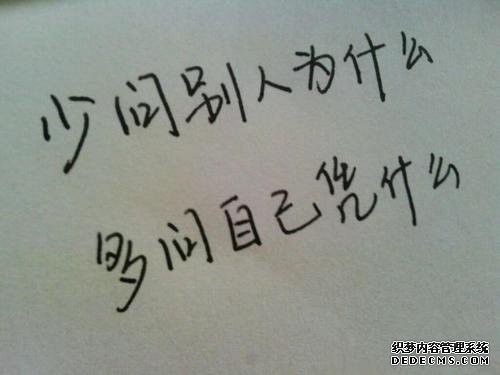 少问别人为什么
多问自己凭什么
织梦内容管理系统
DEDECMS.COM